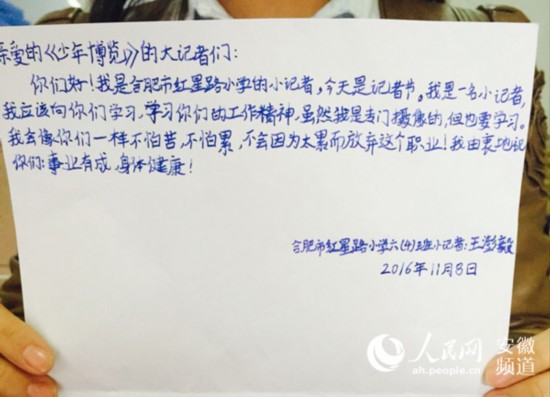 亲爱的《少年博览》的大记者们：
你们好！我是合肥市红星路小学的小记者，今天是记者节。我是一名小记者，
我应该向你们学习，学习你们的工作精神，虽然我是专门摄像的，但也要学习。
我会像你们一样不怕苦，不怕累，不会因为太累而放弃这个职业！我由衷地祝
你们：事业有成，身体健康！
合肥市红星路小学六(4)班小记者：王澎毅
2016年11月8日
人民网 安徽频道
ah.people.cn